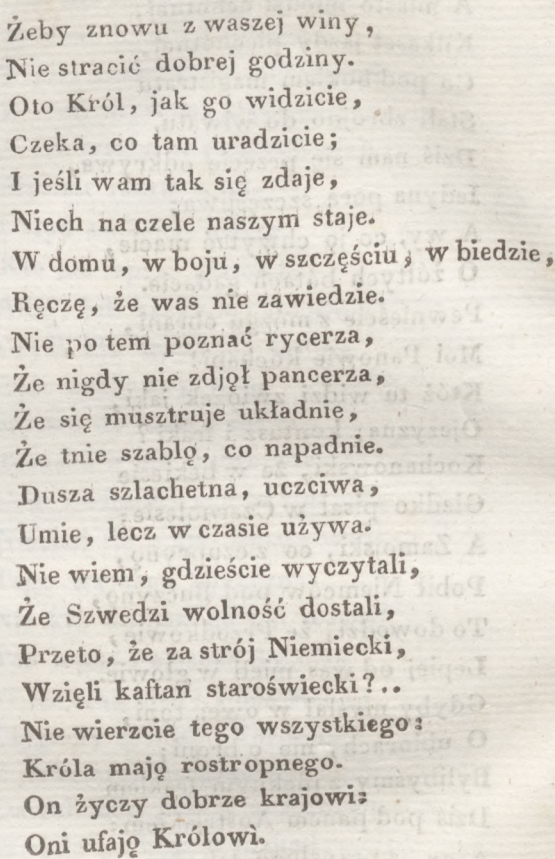 Żeby znowu z waszej winy,
Nie stracić dobrej godziny.
Oto Król, jak go widzicie,
Czeka, co tam uradzicie;
I jeśli wam tak się zdaje,
Niech na czele naszym staje.
W domu, w boju, w szczęściu, w biedzie,
Ręczę, że was nie zawiedzie.
Nie po tem poznać rycerza,
Że nigdy nie zdjął pancerza,
Że się musztruje układnie,
Że tnie szablą, co napadnie.
Dusza szlachetna, uczciwa,
Umie, lecz w czasie używa.
Nie wiem, gdzieście wyczytali,
Że Szwedzi wolność dostali,
Przeto, że za strój Niemiecki,
Wzięli kaftan staroświecki?..
Nie wierzcie tego wszystkiego:
Króla mają rostropnego.
On życzy dobrze krajowi:
Oni ufają Królowi.